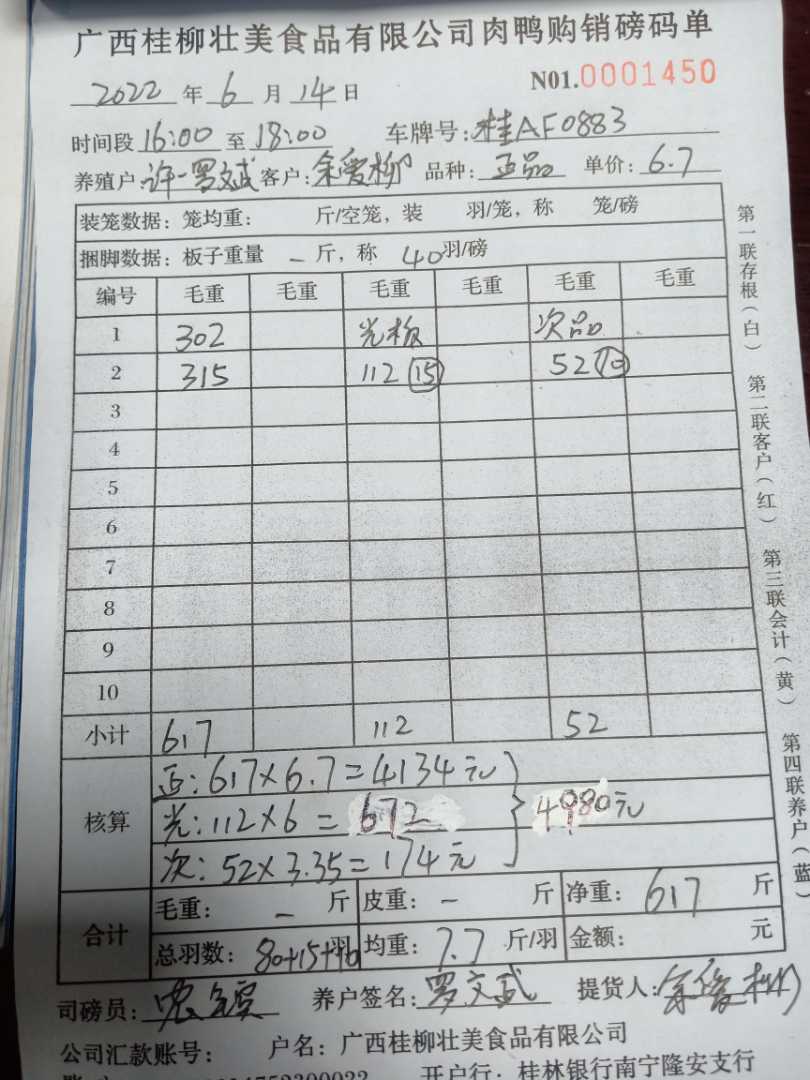 广西桂柳壮美食品有限公司肉鸭购销磅码单
2022 年 6 月 14 日 N01.0001450
时间段 16:00 至 18:00 车牌号: 桂AF0883
养殖户: 许一罗文斌 客户: 余爱柳 品种: 正品 单价: 6.7
装笼数据: 笼均重: 斤/空笼, 装 羽/笼, 称 笼/磅
捆脚数据: 板子重量 - 斤, 称 40 羽/磅
编号 毛重 毛重 毛重 毛重 毛重 毛重
1 302 光板 次品
2 315 112 (15) 52
3
4
5
6
7
8
9
10
小计 617 112 52
核算
正: 617×6.7=4134元
光: 112×6=672
次: 52×3.35=174元
4980元
合计
毛重: - 斤 皮重: - 斤 净重: 617 斤
总羽数: 80+15+ 羽 均重: 7.7 斤/羽 金额: 元
司磅员: 养户签名: 罗文武 提货人: 余爱柳
公司汇款账号: 户名: 广西桂柳壮美食品有限公司
开户行: 桂林银行南宁隆安支行
第一联存根(白) 第二联客户(红) 第三联会计(黄) 第四联养户(蓝)